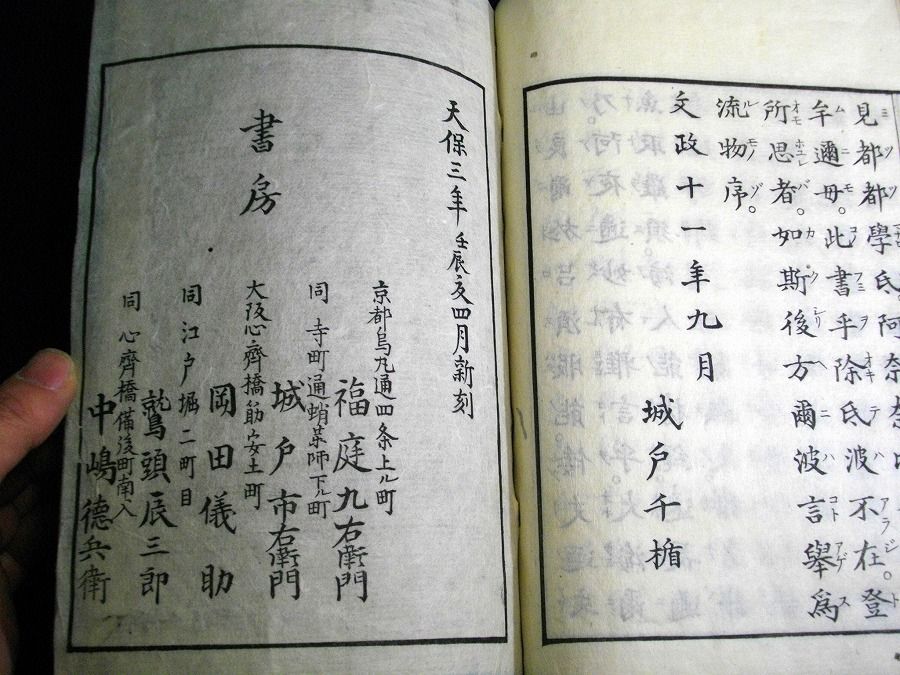 見都都學氐。阿奈
牟邇毋。此書乎除氐波不在。登
所思者。如斯後方爾波言舉爲
流物序。
文政十一年九月
城戸千楯
天保三年壬辰夏四月新刻
書房
京都烏丸通四条上ル町
福庭九右衛門
同 寺町通蛸薬師下ル町
城戸市右衛門
大阪心齊橋筋安土町
岡田儀助
同 江戸堀二町目
鷲頭辰三郎
同 心齊橋備後町南入
中嶋德兵衛